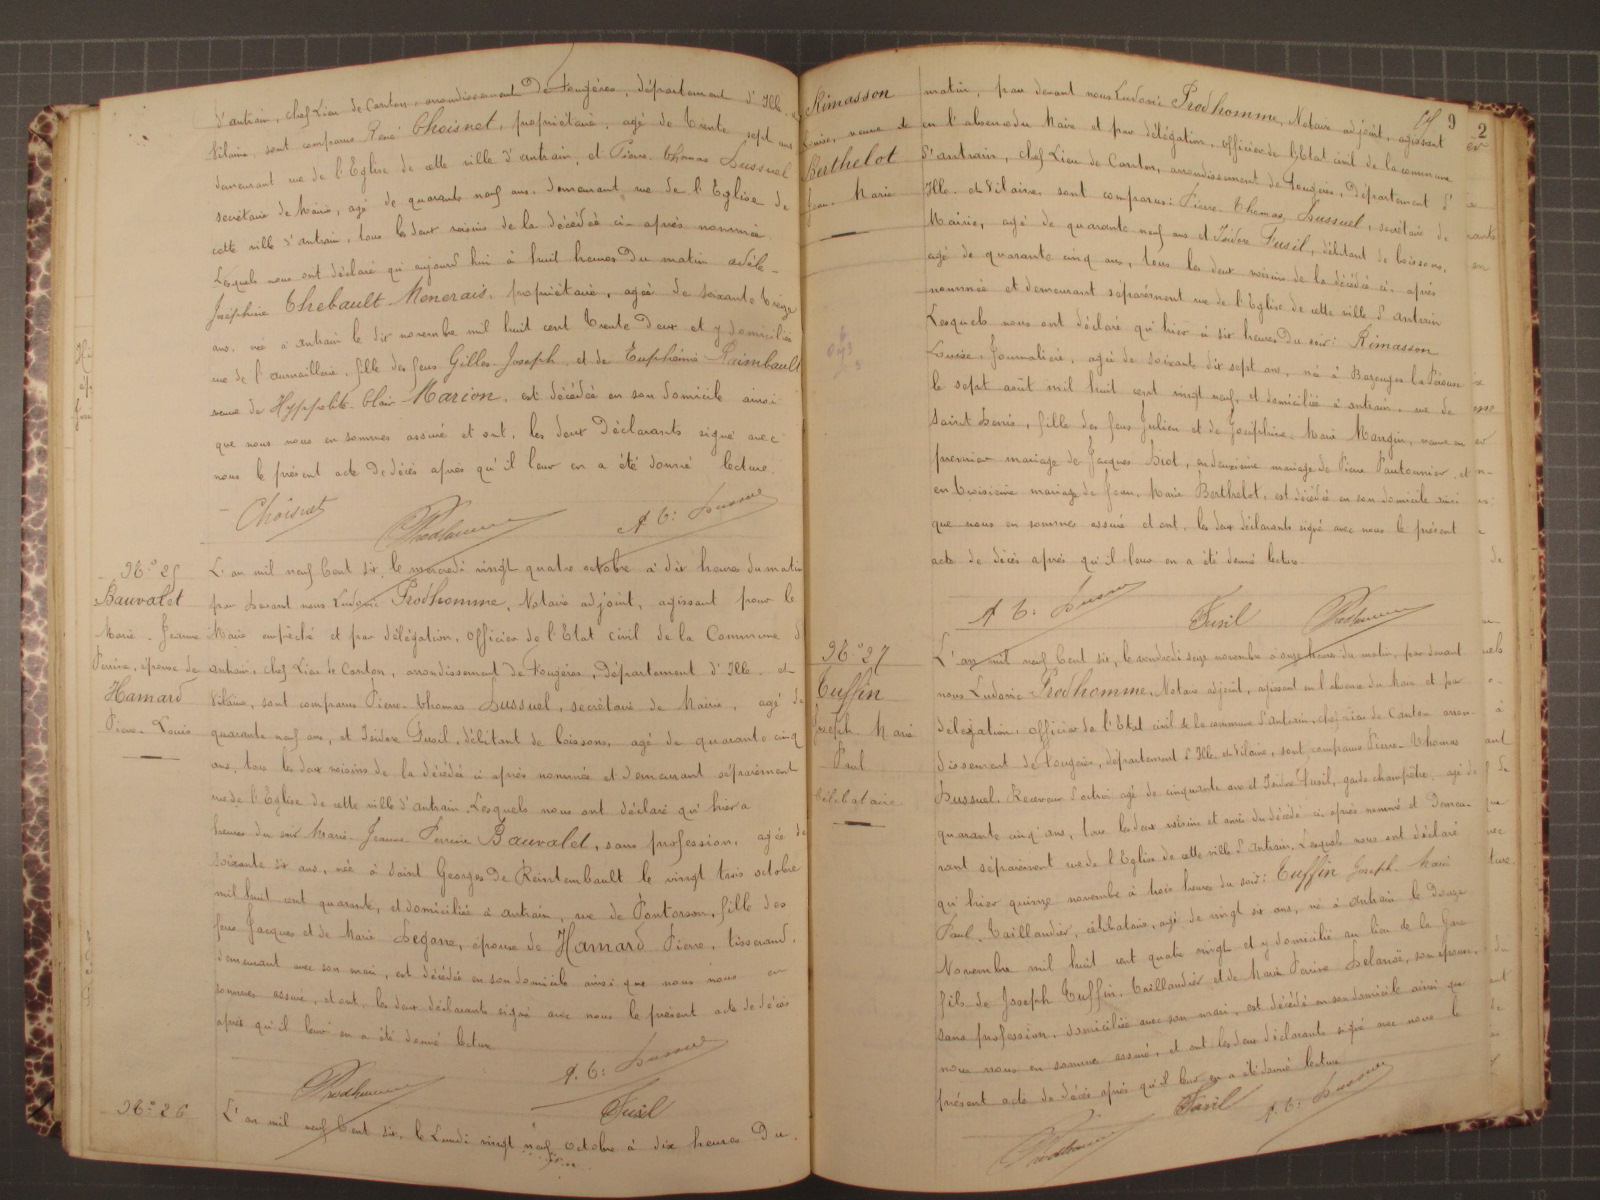 d'antrain, chef Lieu de Canton, arrondissement De Fougères, département d'Ille et
Vilaine, sont comparus René Choisnet, propriétaire, agé de trente sept ans
demeurant rue de l'Eglise de cette ville d'antrain, et Pierre Thomas Dussuel
secrétaire de Mairie, agé de quarante neuf ans, demeurant rue de l'Eglise de
cette ville d'antrain, tous les deux voisins de la décédée ci-après nommée
Lesquels nous ont déclaré qu'aujourd'hui à huit heures Du matin adèle-
Joséphine Thebault-Menerais, propriétaire, agée de soixante treize
ans, née à antrain le dix novembre mil huit cent trente Deux et y domiciliée
rue de l'aumaillerie, fille des feus Gilles-Joseph et de Euphémie Raimbault
veuve de Hyppolite-Clair Marion, est décédée en son domicile ainsi
que nous nous en sommes assuré et ont, les deux Déclarants signé avec
nous le présent acte De décès après qu'il leur en a été donné lecture.
Choisnet Prodhomme P. T: Dussuel
No 25
Bauvalet
Marie-Jeanne
Perrine, épouse de
Hamard
Pierre-Louis
L'an mil neuf Cent six, le mercredi vingt quatre octobre à dix heures du matin
par Devant nous Ludovic Prodhomme, Notaire adjoint, agissant pour le
Maire empêché et par délégation, officier de l'Etat civil de la Commune d'
antrain, chef Lieu de Canton, arrondissement De Fougères, Département d'Ille-et
Vilaine, sont comparus Pierre-Thomas Dussuel, secrétaire de Mairie, agé de
quarante neuf ans, et Isidore Fusil, débitant de boissons, agé de quarante cinq
ans, tous les deux voisins de la décédée ci après nommée et demeurant séparément
rue de l'Eglise de cette ville d'antrain. Lesquels nous ont déclaré qu'hier à
heures du soir Marie-Jeanne-Perrine Bauvalet, sans profession, agée de
soixante six ans, née à Saint Georges De Reintembault le vingt trois octobre
mil huit cent quarante, et domiciliée à antrain, rue de Pontorson, fille des
feus Jacques et de Marie Degane, épouse de Hamard Pierre, tisserand,
demeurant avec son mari, est décédée en son domicile ainsi que nous nous en
sommes assuré, et ont, les deux déclarants signé avec nous le présent acte de décès
après qu'il leur en a été donné lecture
Prodhomme P. T: Dussuel
Fusil
No 26
L'an mil neuf Cent six, le Lundi vingt neuf octobre à dix heures Du
Rimasson
Louise, veuve de
Berthelot
Jean-Marie
9
2
matin, par devant nous Ludovic Prodhomme, Notaire adjoint, agissant
en l'absence du Maire et par délégation, officier de l'Etat civil de la commune
d'antrain, chef Lieu de Canton, arrondissement de Fougères, Département d'
Ille-et-Vilaine, sont comparus: Pierre-Thomas Dussuel, secrétaire de
Mairie, agé de quarante neuf ans et Isidore Fusil, débitant de boissons,
agé de quarante cinq ans, tous les deux voisins de la décédée ci-après
nommée et demeurant séparément rue de l'Eglise de cette ville d'antrain
Lesquels nous ont déclaré qu'hier à six heures Du soir: Rimasson
Louise, Journalière, agée de soixante dix sept ans, née à Bazouges la Pérouse
le sept août mil huit cent vingt neuf, et domiciliée à antrain, rue de
Saint Denis, fille des feus Julien et de Joséphine-Marie Mangin, veuve en
premier mariage de Jacques Diot, en deuxième mariage de Pierre Pautonnier, et
en troisième mariage de Jean-Marie Berthelot, est décédée en son domicile ainsi
que nous en sommes assuré et ont, les deux déclarants signé avec nous le présent
acte de décès après qu'il leur en a été donné lecture.
P. T: Dussuel Fusil Prodhomme
No 27
Tuffin
Joseph-Marie
Paul
Célibataire
L'an mil neuf Cent six, le vendredi seize novembre à onze heures du matin, par devant
nous Ludovic Prodhomme, Notaire adjoint, agissant en l'absence du Maire et par
délégation, officier de l'Etat civil de la commune d'antrain, chef Lieu de Canton arron-
dissement de Fougères, département d'Ille et Vilaine, sont comparus Pierre-Thomas
Dussuel, Receveur d'octroi agé de cinquante ans et Isidore Fusil, garde champêtre, agé de
quarante cinq ans, tous les deux voisins et amis du décédé ci-après nommé et Demeu-
rant séparément rue de l'Eglise de cette ville d'antrain, Lesquels nous ont déclaré
qu'hier quinze novembre à trois heures du soir: Tuffin Joseph-Marie
Paul, Taillandier, célibataire, agé de vingt six ans, né à antrain le Douze
Novembre mil huit cent quatre vingt et y domicilié au lieu de la Gare
fils de Joseph Tuffin, taillandier et de Marie Perrine Delanoë, son épouse,
sans profession, domiciliée avec son mari, est décédé en son domicile ainsi que
nous nous en sommes assuré, et ont les deux déclarants signé avec nous le
présent acte de décès après qu'il leur en a été donné lecture
Prodhomme Fusil P. T: Dussuel